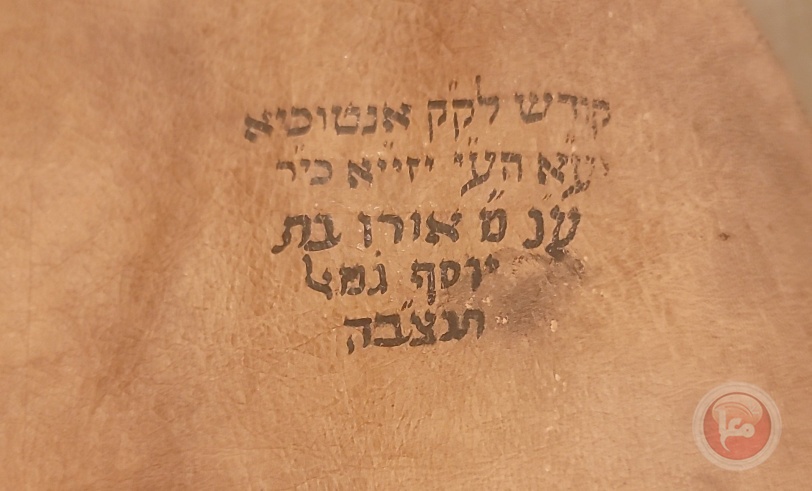 קודש לק״ק אנטוכיא
יע״א הע״י יזייא כי״ר
ע״נ מ׳ אורו בת
יוסף גמל
תנצ״בה
معا